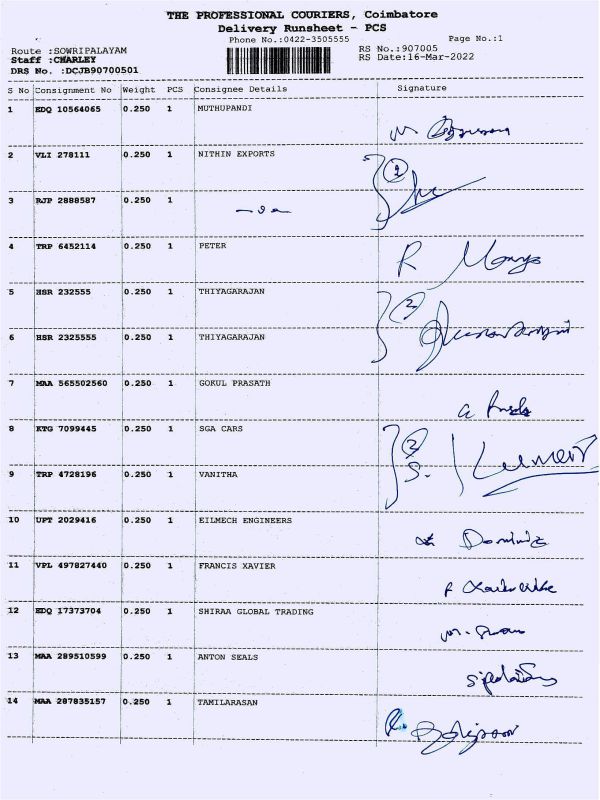 THE PROFESSIONAL COURIERS, Coimbatore
Delivery Runsheet - PCS
Phone No.:0422-3505555 Page No.:1
Route :SOWRIPALAYAM RS No.:907005
Staff :CHARLEY RS Date:16-Mar-2022
DRS No. :DCJB90700501
S No Consignment No Weight PCS Consignee Details Signature
1 EDQ 10564065 0.250 1 MUTHUPANDI
2 VLI 278111 0.250 1 NITHIN EXPORTS 2
3 RJP 2888587 0.250 1
4 TRP 6452114 0.250 1 PETER
5 HSR 232555 0.250 1 THIYAGARAJAN 2
6 HSR 2325555 0.250 1 THIYAGARAJAN
7 MAA 565502560 0.250 1 GOKUL PRASATH
8 KTG 7099445 0.250 1 SGA CARS 2
9 TRP 4728196 0.250 1 VANITHA S.
10 UPT 2029416 0.250 1 EILMECH ENGINEERS
11 VPL 497827440 0.250 1 FRANCIS XAVIER
12 EDQ 17373704 0.250 1 SHIRAA GLOBAL TRADING
13 MAA 289510599 0.250 1 ANTON SEALS
14 MAA 287835157 0.250 1 TAMILARASAN